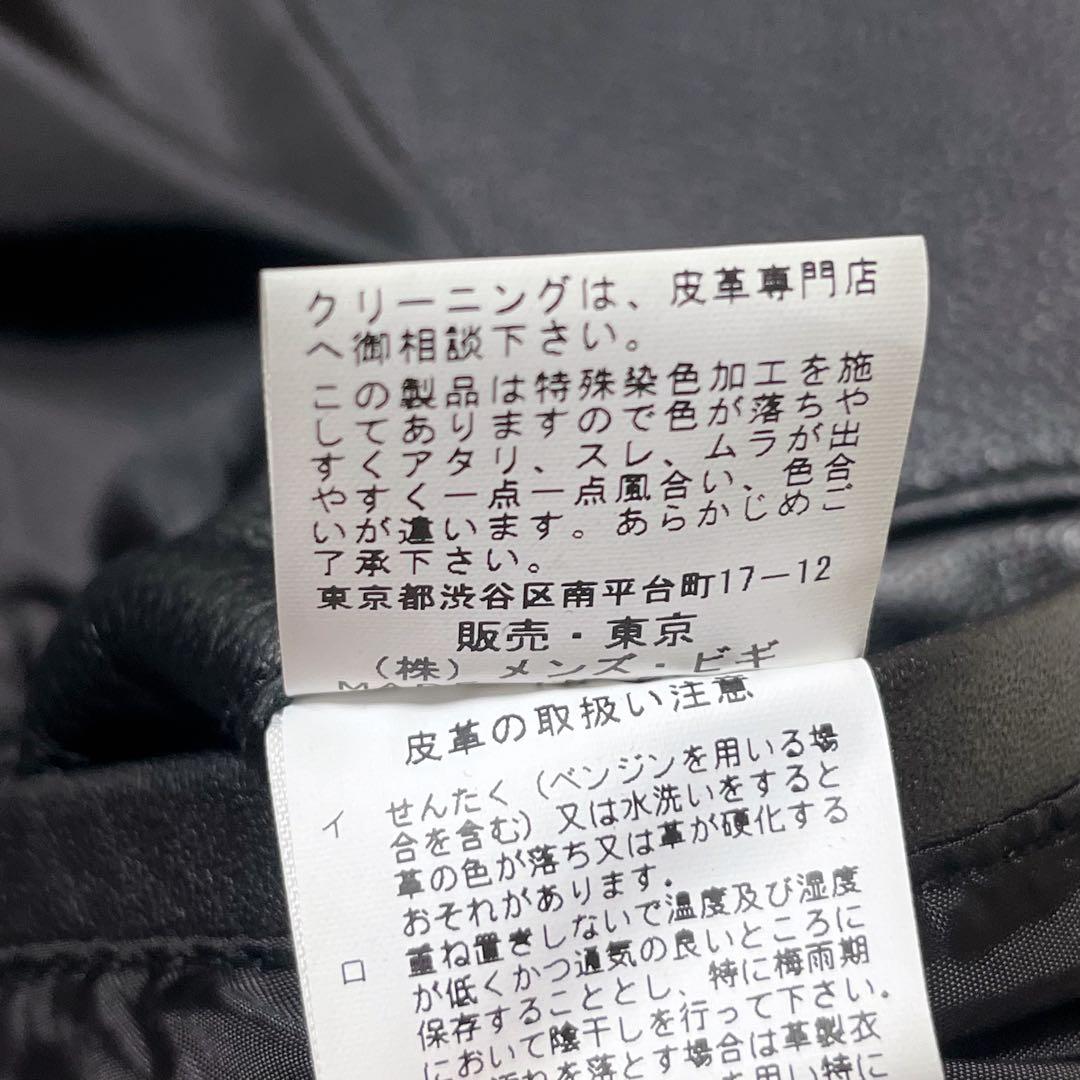 クリーニングは、皮革専門店
へ御相談下さい。
この製品は特殊染色加工を施
してありますので色が落ちや
すくアタリ、スレ、ムラが出
やすく一点一点風合い、色合
いが違います。あらかじめご
了承下さい。
東京都渋谷区南平台町17-12
販売・東京
(株)メンズ・ビギ
皮革の取扱い注意
イ せんたく(ベンジンを用いる場
合を含む)又は水洗いをすると
革の色が落ち又は革が硬化する
おそれがあります.
ロ 重ね置きしないで温度及び湿度
が低くかつ通気の良いところに
保存することとし、特に梅雨期
において陰干しを行って下さい.
を落とす場合は革製衣
用い特に